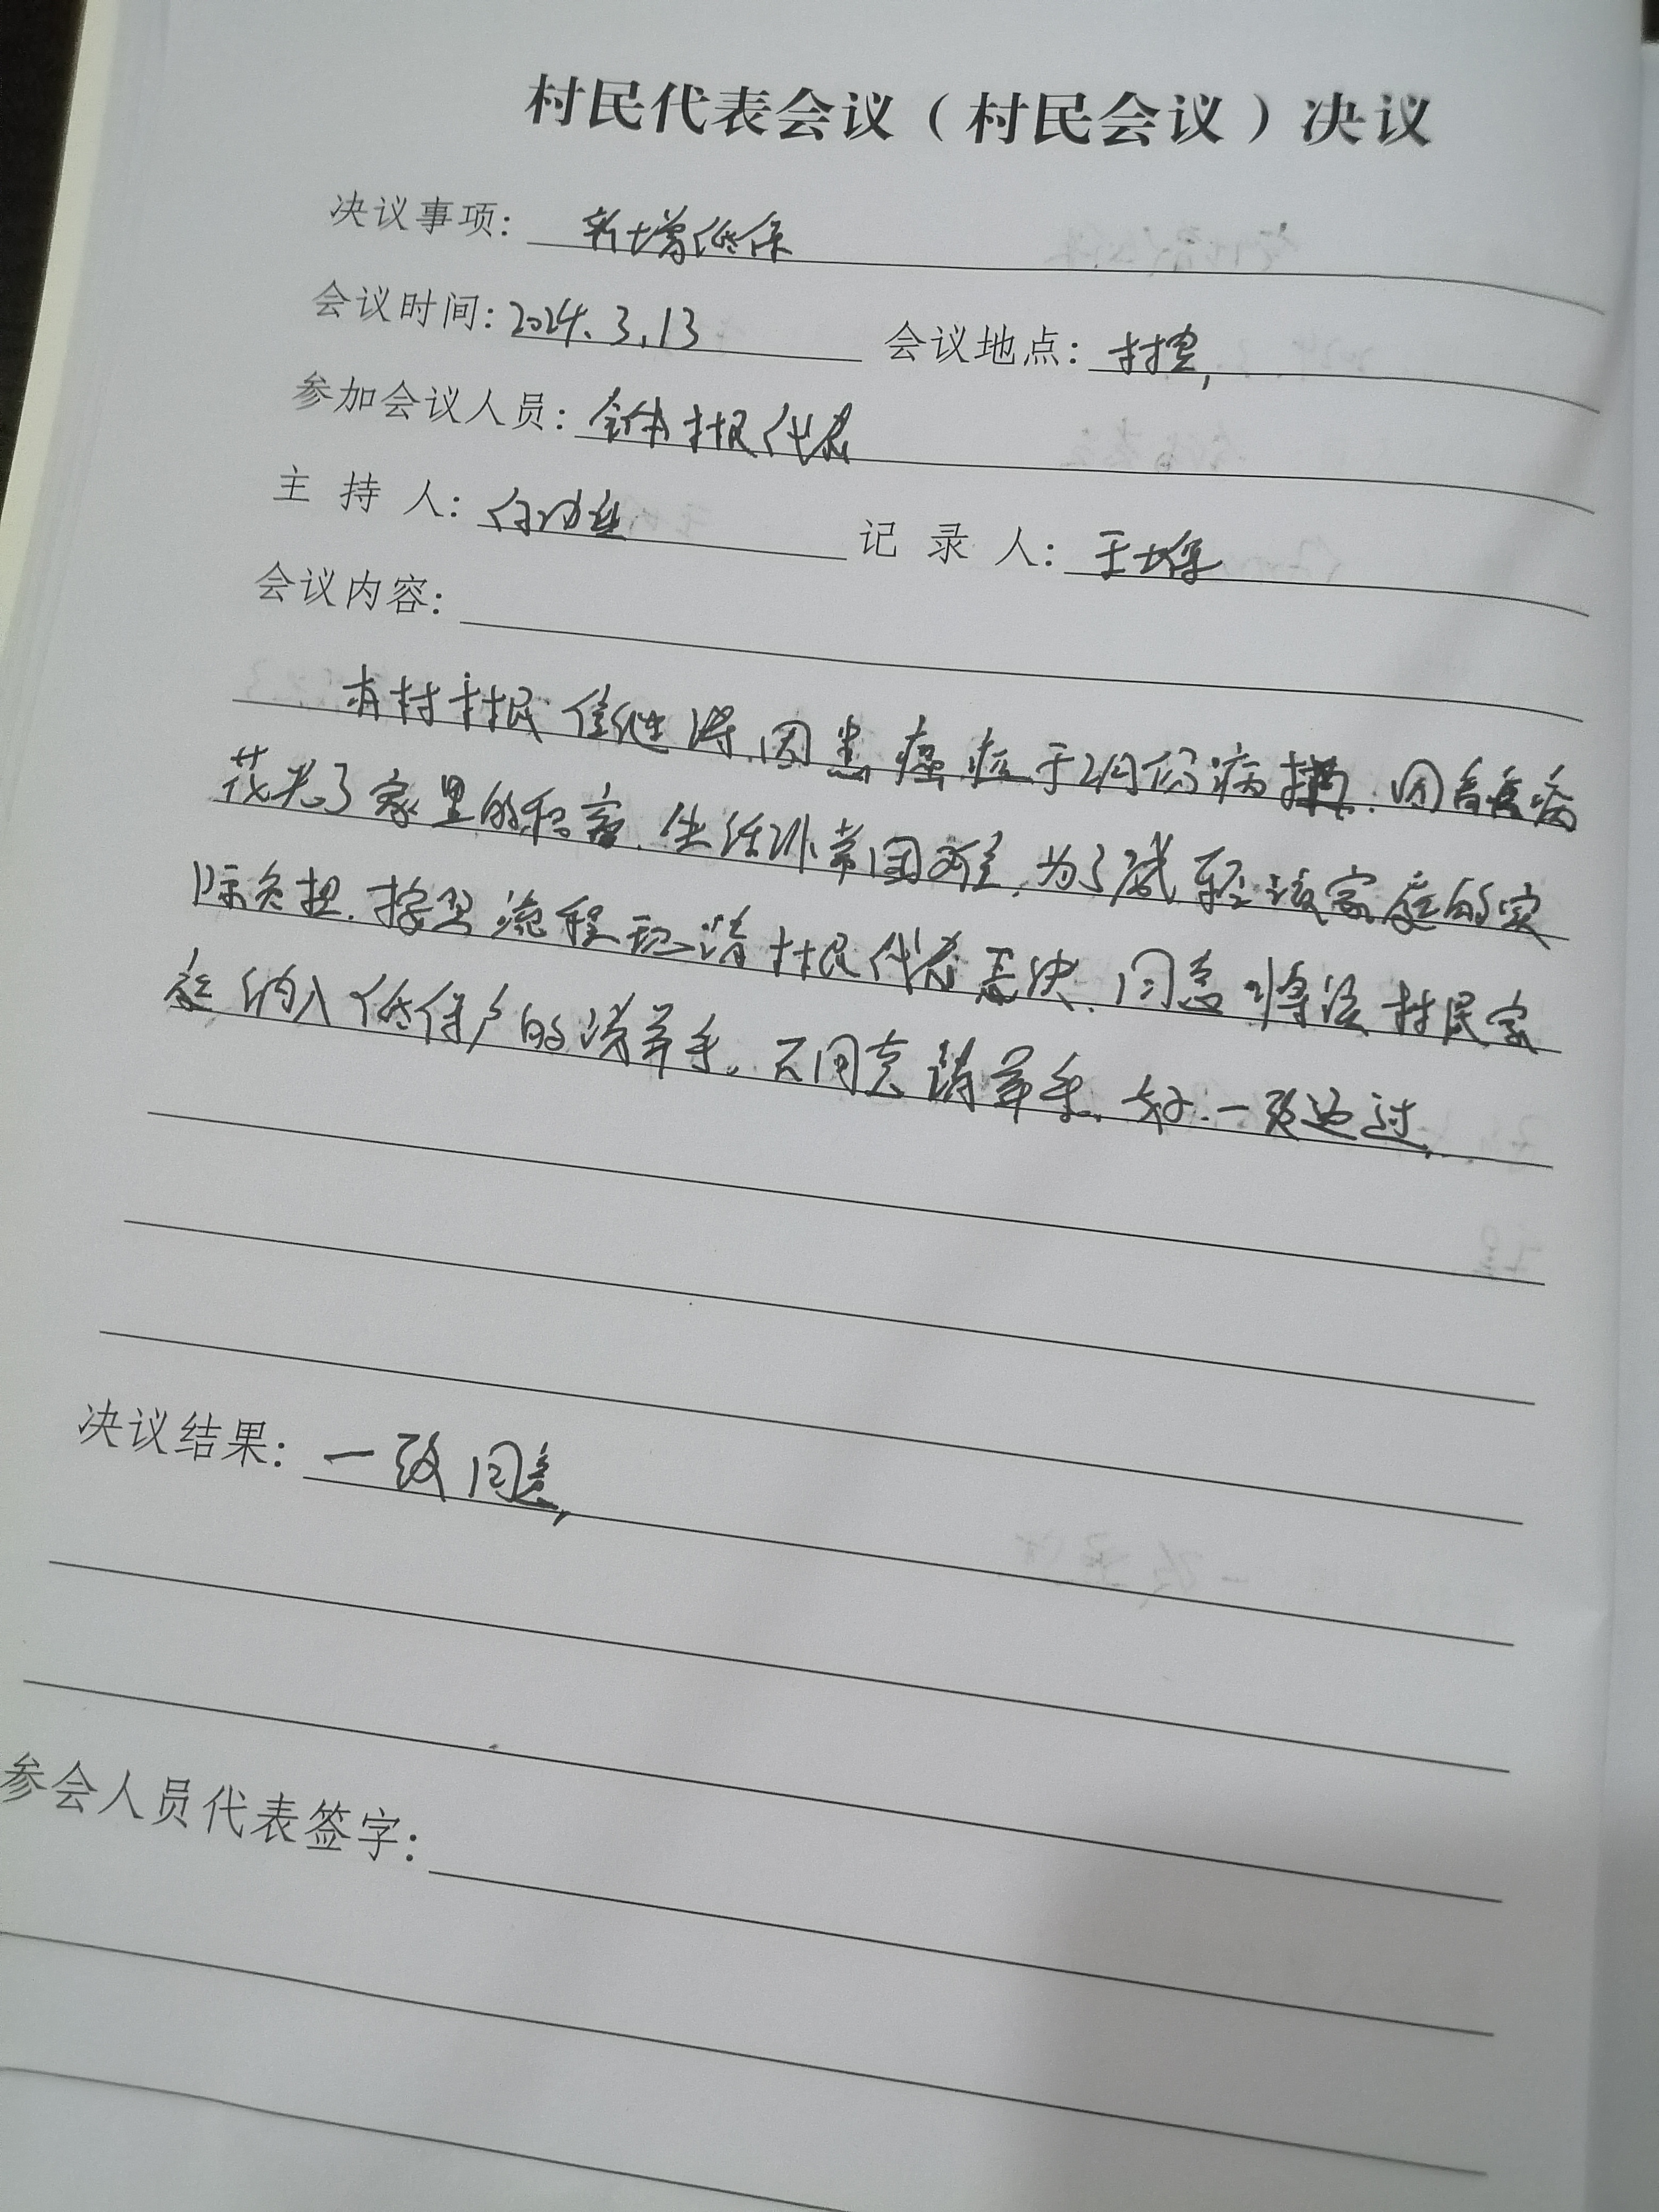 村民代表会议（村民会议）决议
决议事项： 新增低保
会议时间：2024.3.13 会议地点：村里，
参加会议人员：全体村民代表
主 持 人： 记 录 人：
会议内容：
村村民 因患癌症于2月份病 .因看病
花光了家里的积蓄.生活非常困难,为了减轻该家庭的实
际负担.按照流程现请村民代表表决.同意将该村民家
庭纳入低保户的请举手。不同意请举手.好.一致通过.
决议结果：一致同意，
参会人员代表签字：